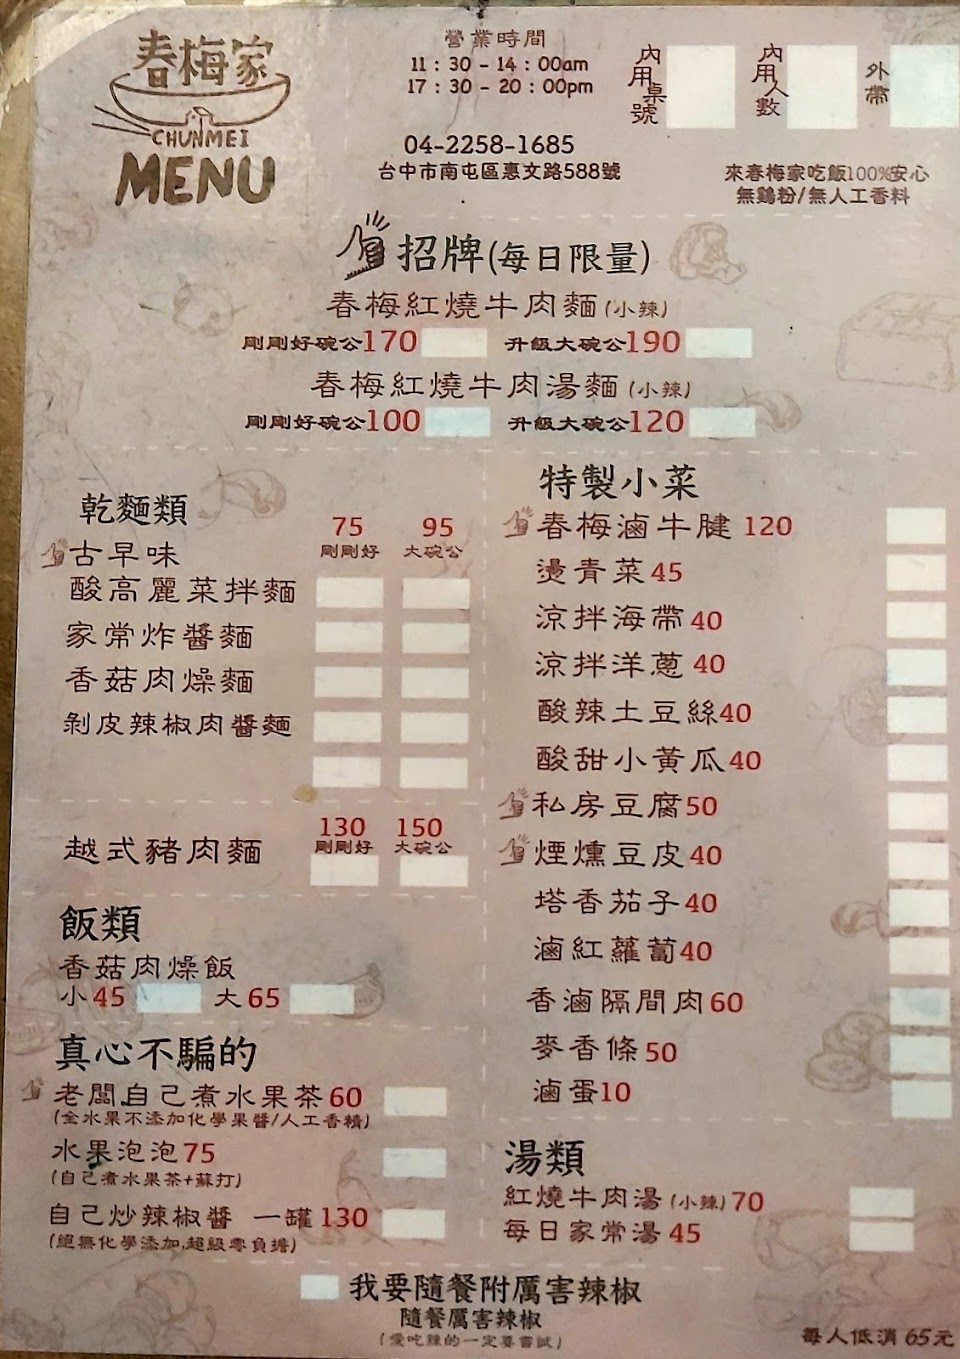 春梅家
CHUNMEI
MENU
營業時間
11 : 30 - 14 : 00am
17 : 30 - 20 : 00pm
04-2258-1685
台中市南屯區惠文路588號
內用桌號
內用人數
外帶
來春梅家吃飯100%安心
無鷄粉/無人工香料
招牌(每日限量)
春梅紅燒牛肉麵(小辣)
剛剛好碗公170 升級大碗公190
春梅紅燒牛肉湯麵(小辣)
剛剛好碗公100 升級大碗公120
乾麵類
75 95
剛剛好 大碗公
古早味
酸高麗菜拌麵
家常炸醬麵
香菇肉燥麵
剝皮辣椒肉醬麵
130 150
剛剛好 大碗公
越式豬肉麵
飯類
香菇肉燥飯
小45 大65
真心不騙的
老闆自己煮水果茶60
(全水果不添加化學果醬/人工香精)
水果泡泡75
(自己煮水果茶+蘇打)
自己炒辣椒醬 一罐130
(絕無化學添加.超級零負擔)
特製小菜
春梅滷牛腱 120
燙青菜45
涼拌海帶40
涼拌洋蔥40
酸辣土豆絲40
酸甜小黃瓜40
私房豆腐50
煙燻豆皮40
塔香茄子40
滷紅蘿蔔40
香滷隔間肉60
麥香條50
滷蛋10
湯類
紅燒牛肉湯(小辣)70
每日家常湯45
我要隨餐附厲害辣椒
隨餐厲害辣椒
(愛吃辣的一定要嘗試)
每人低消65元